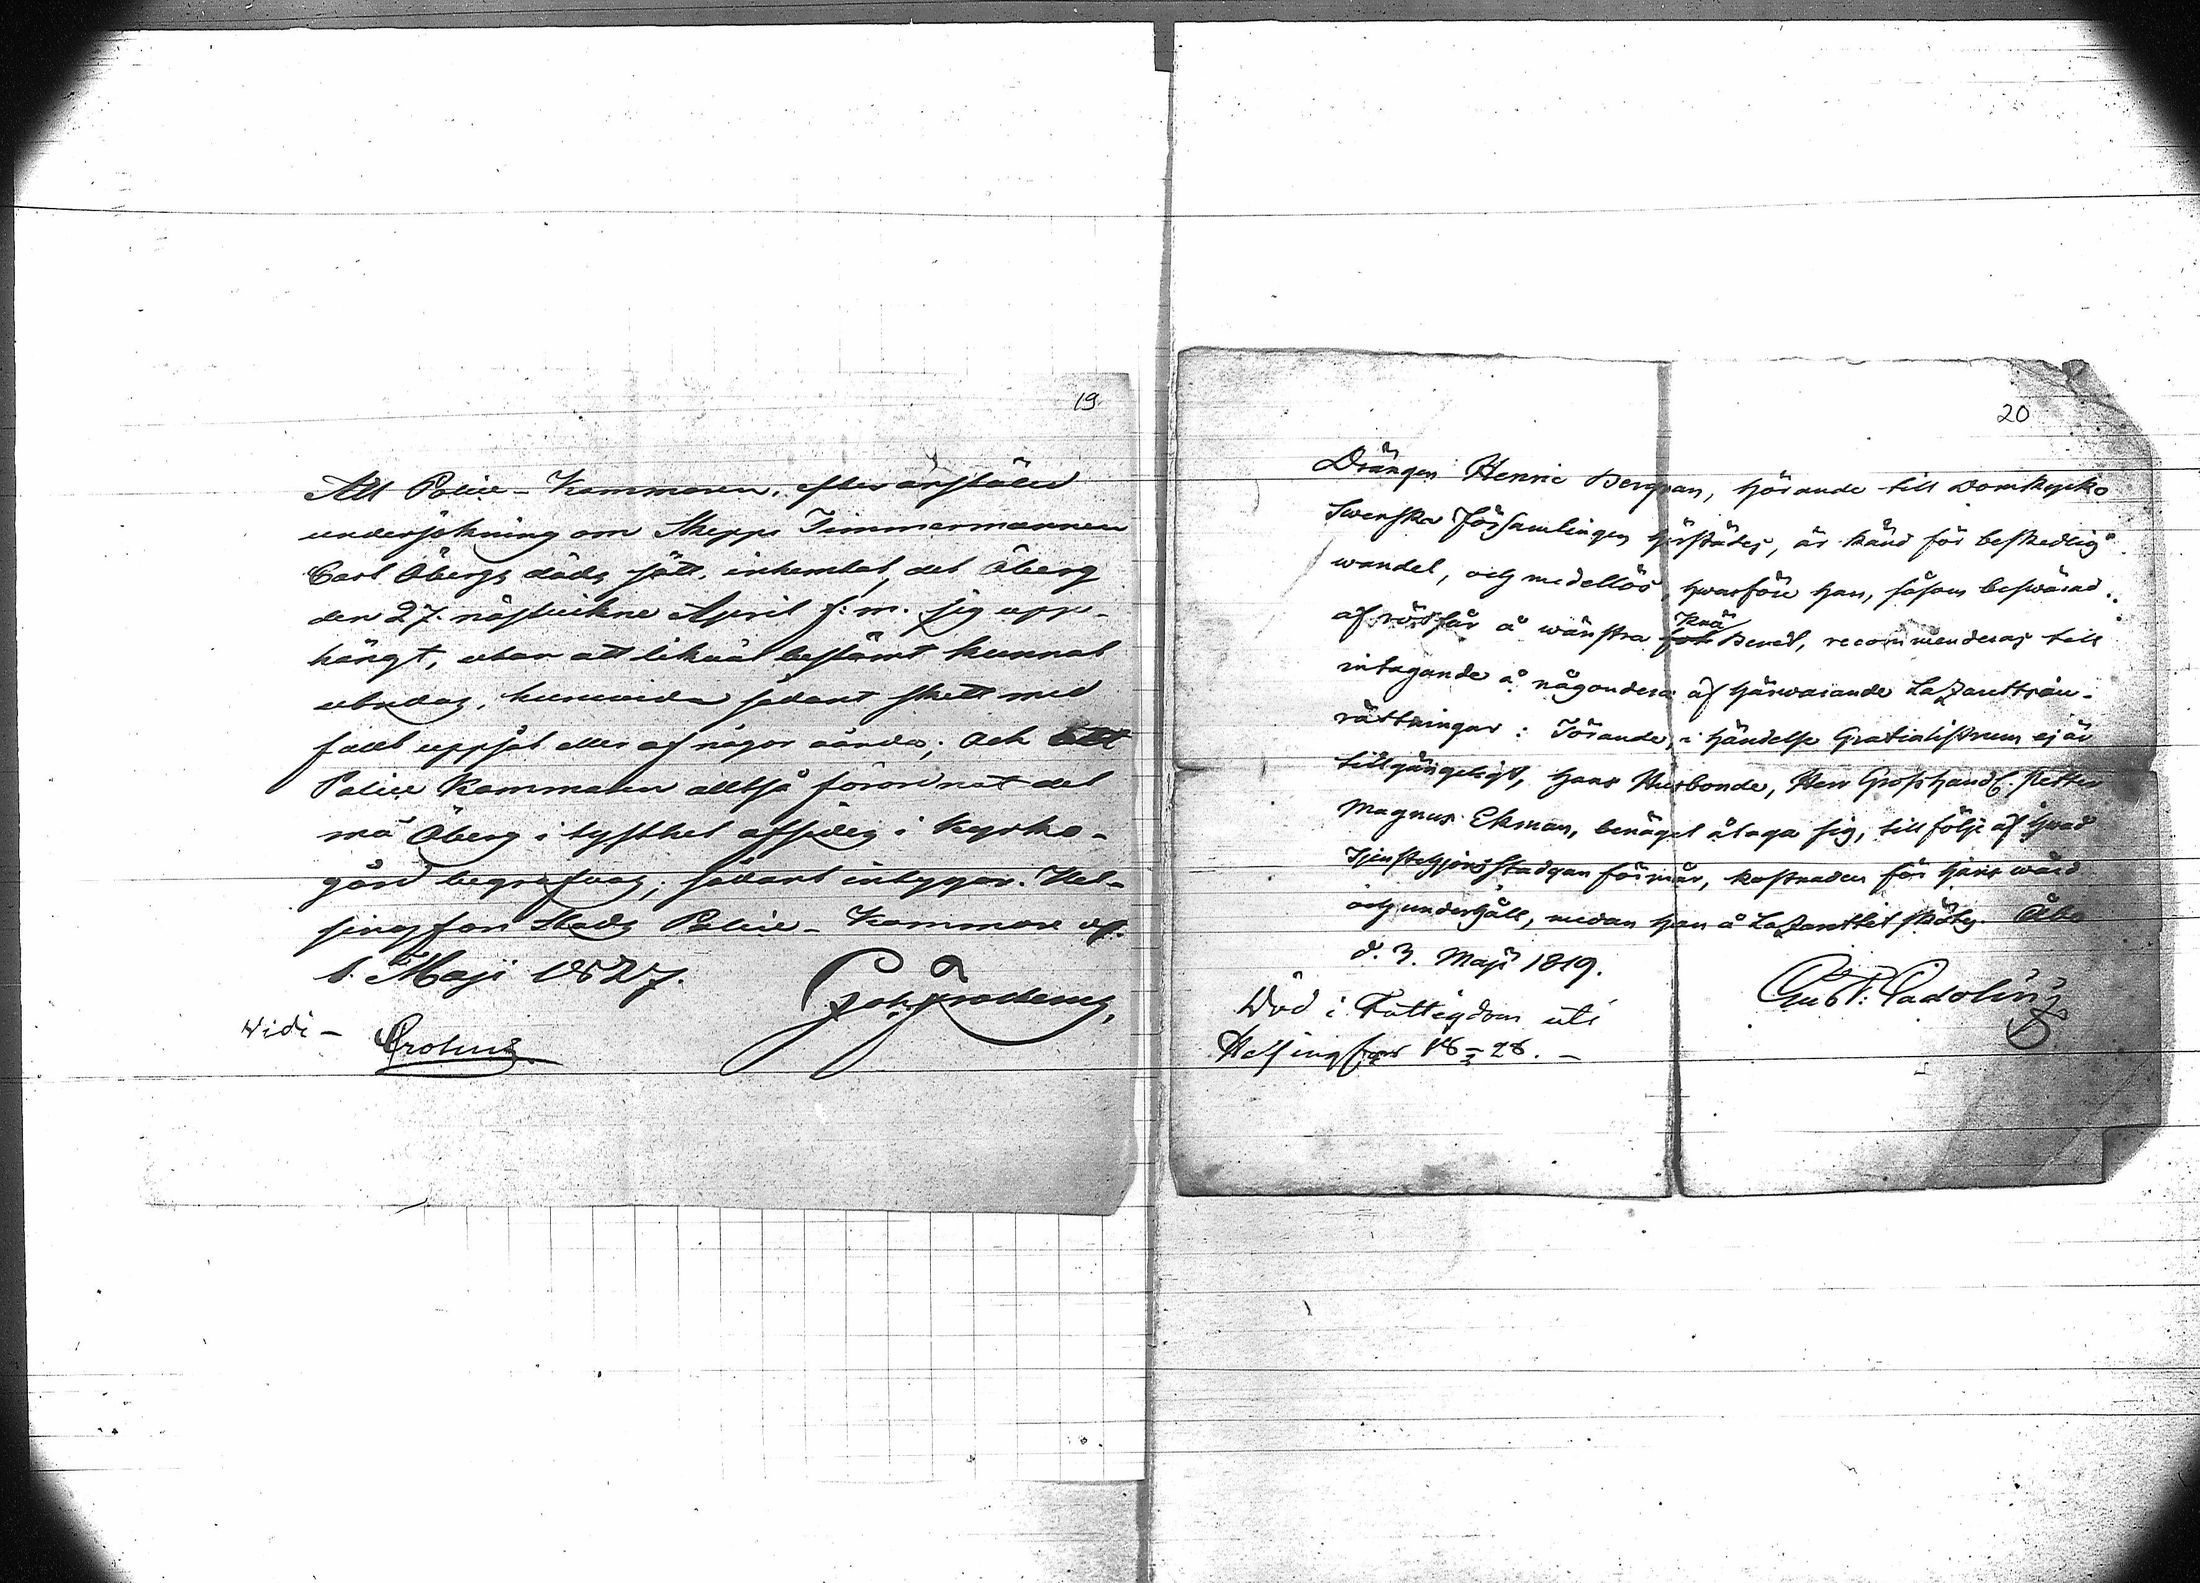 19
Att Police-Kammaren, efter anstäld
undersökning om Skepps Timmermannen
Carl Öbergs döds sätt, inhemtat, det Öberg
den 27. nästvikne April f: m. sig upp-
hängt, utan att likväl bestämt kunnat
utredas, huruvida sådant skett med
fullt uppsåt eller af någor vånda; och att
Police Kammaren alltså förordnat det
må Öberg i tysthet afsides i kyrko-
gård begrafvas; sådant intygar. Hel-
singfors Stads Police-Kammare d.
1. Maji 1827.
Widi -
20
Drängen Henric Bergman, hörande till Domkyrko
Swenska Församlingen härstädes, är känd för beskedlig
wandel, och medellös hwarföre han, såsom beswärad
af rötsår å wänstra Knä Benet, recommenderas till
intagande å någondera af härwarande Lazarettsin-
rättningar: Görande, i händelse Gratialistrum ej är
tillgängeligt, hans Husbonde, Herr Grosshandl. Petter
Magnus Ekman, benäget åtaga sig, till följe af hwad
Tjenstehjonsstadgan förmår, kostnaden för hans wård
och underhåll, medan han å Lazarettet skötes. Åbo
d. 3. Maji 1819.
Gust: Gadolin
Död i Fattigdom uti
Helsingfors 18 28. -